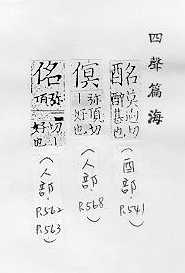 四聲篇海
酩 莫迥切
酩酊甚也
(酉部.
P.541)
㒋 弥頂切
好也
(人部.
P.568)
佲 弥
頂切
好也
(人部.
P.562
P.563)